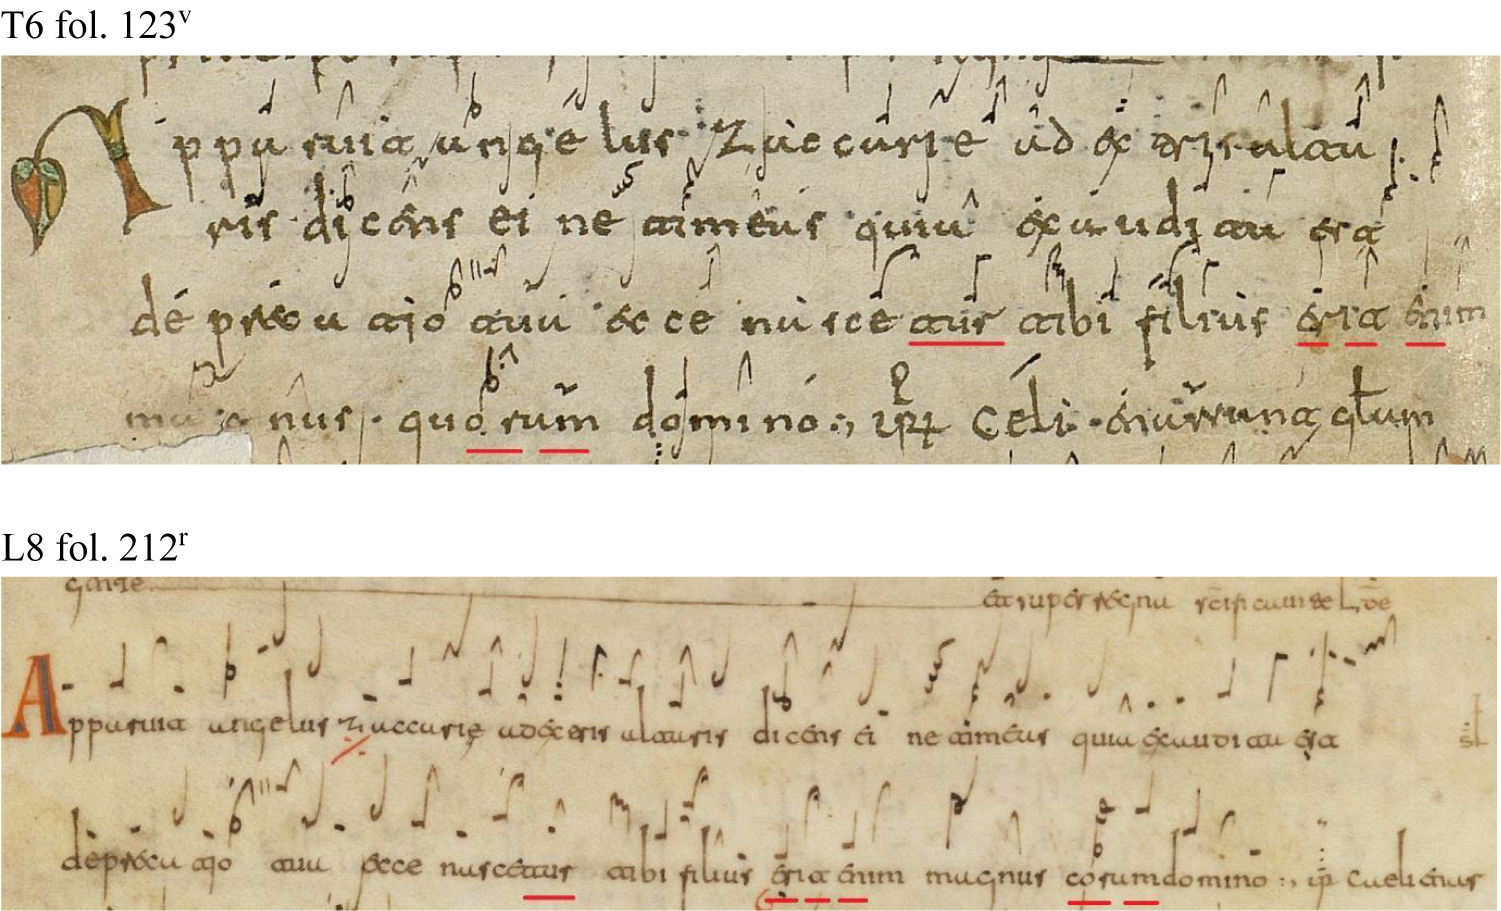 T6 fol. 123v
Apparuit angelus zaccarie ad exteris alta
ris dicens ei ne timeas quia exaudita est
deprecatio tua ecce nascetur tibi filius erit enim
magnus quoram domino celi enarrant
L8 fol. 212r
gente et super regnu
Apparuit angelus zaccarie ad exteris altaris dicens ei ne timeas quia exaudita est
deprecatio tua ecce nascetur tibi filius erit enim magnus coram domino